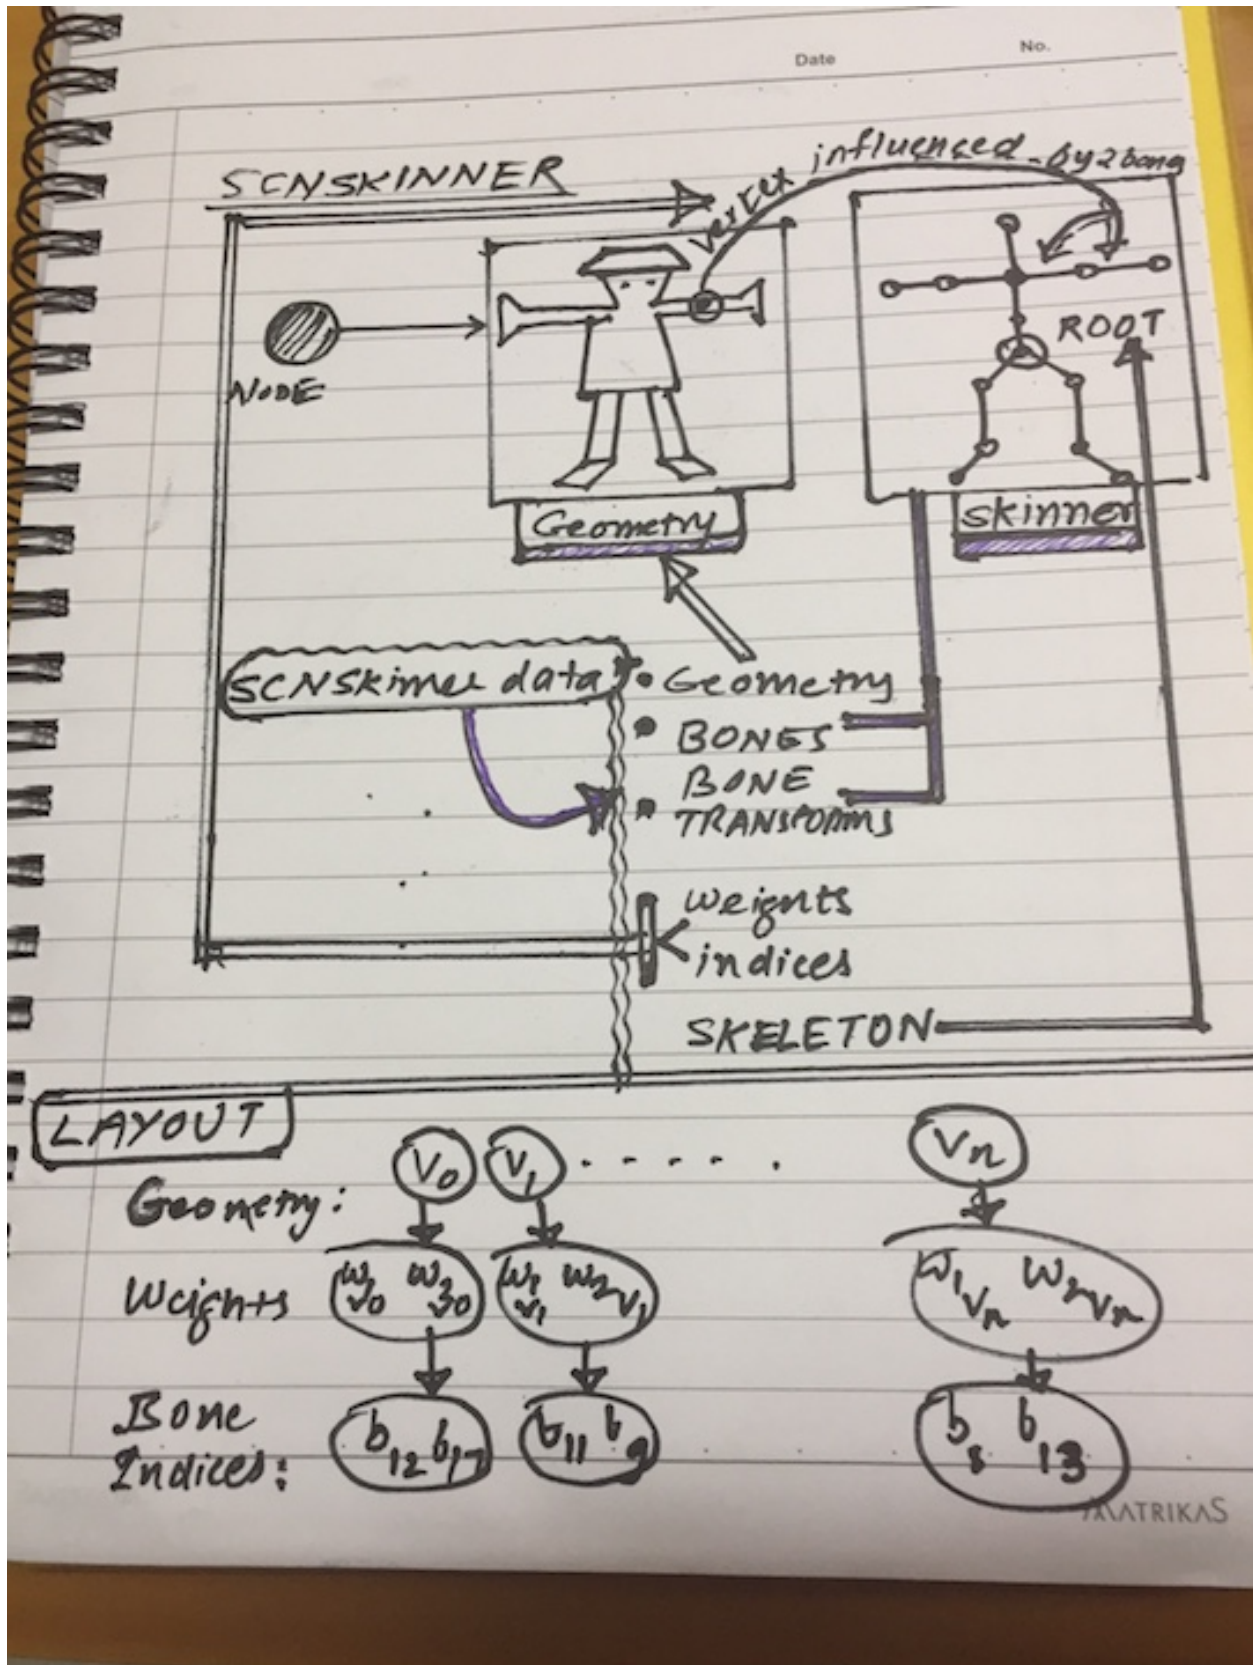 Date No.
SCNSKINNER
vertex influenced by 2 bong
NODE
ROOT
Geometry
skinner
SCNSkinner data
• Geometry
• BONES
• BONE
TRANSFORMS
weights
indices
SKELETON
LAYOUT
Geometry: V0 V1 ..... Vn
Weights
W1 V0 W2 V0 W1 V1 W2 V1 W1 Vn W2 Vn
Bone
Indices: b12 b17 b11 b9 b8 b13
MATRIKAS